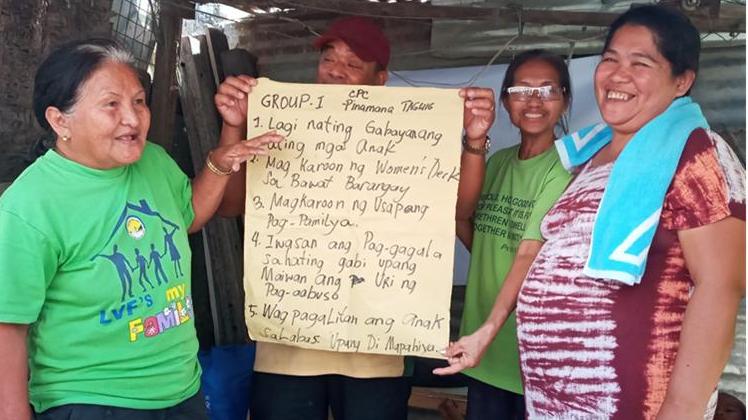 GROUP. I CPC
Pinamana TAGUIG
1. Lagi nating Gabayan ang
ating mga Anak
2. Mag Karoon ng Women's Desk
Sa Bawat Barangay
3. Magkaroon ng Usapang
Pag-Pamilya.
4. Iwasan ang Pag-gagala
sa hating gabi upang
Maiwan ang Uri ng
Pag-aabuso
5. Wag pagalitan ang anak
sa Labas Upang Di Mapahiya.
LVF'S my
FAMILY